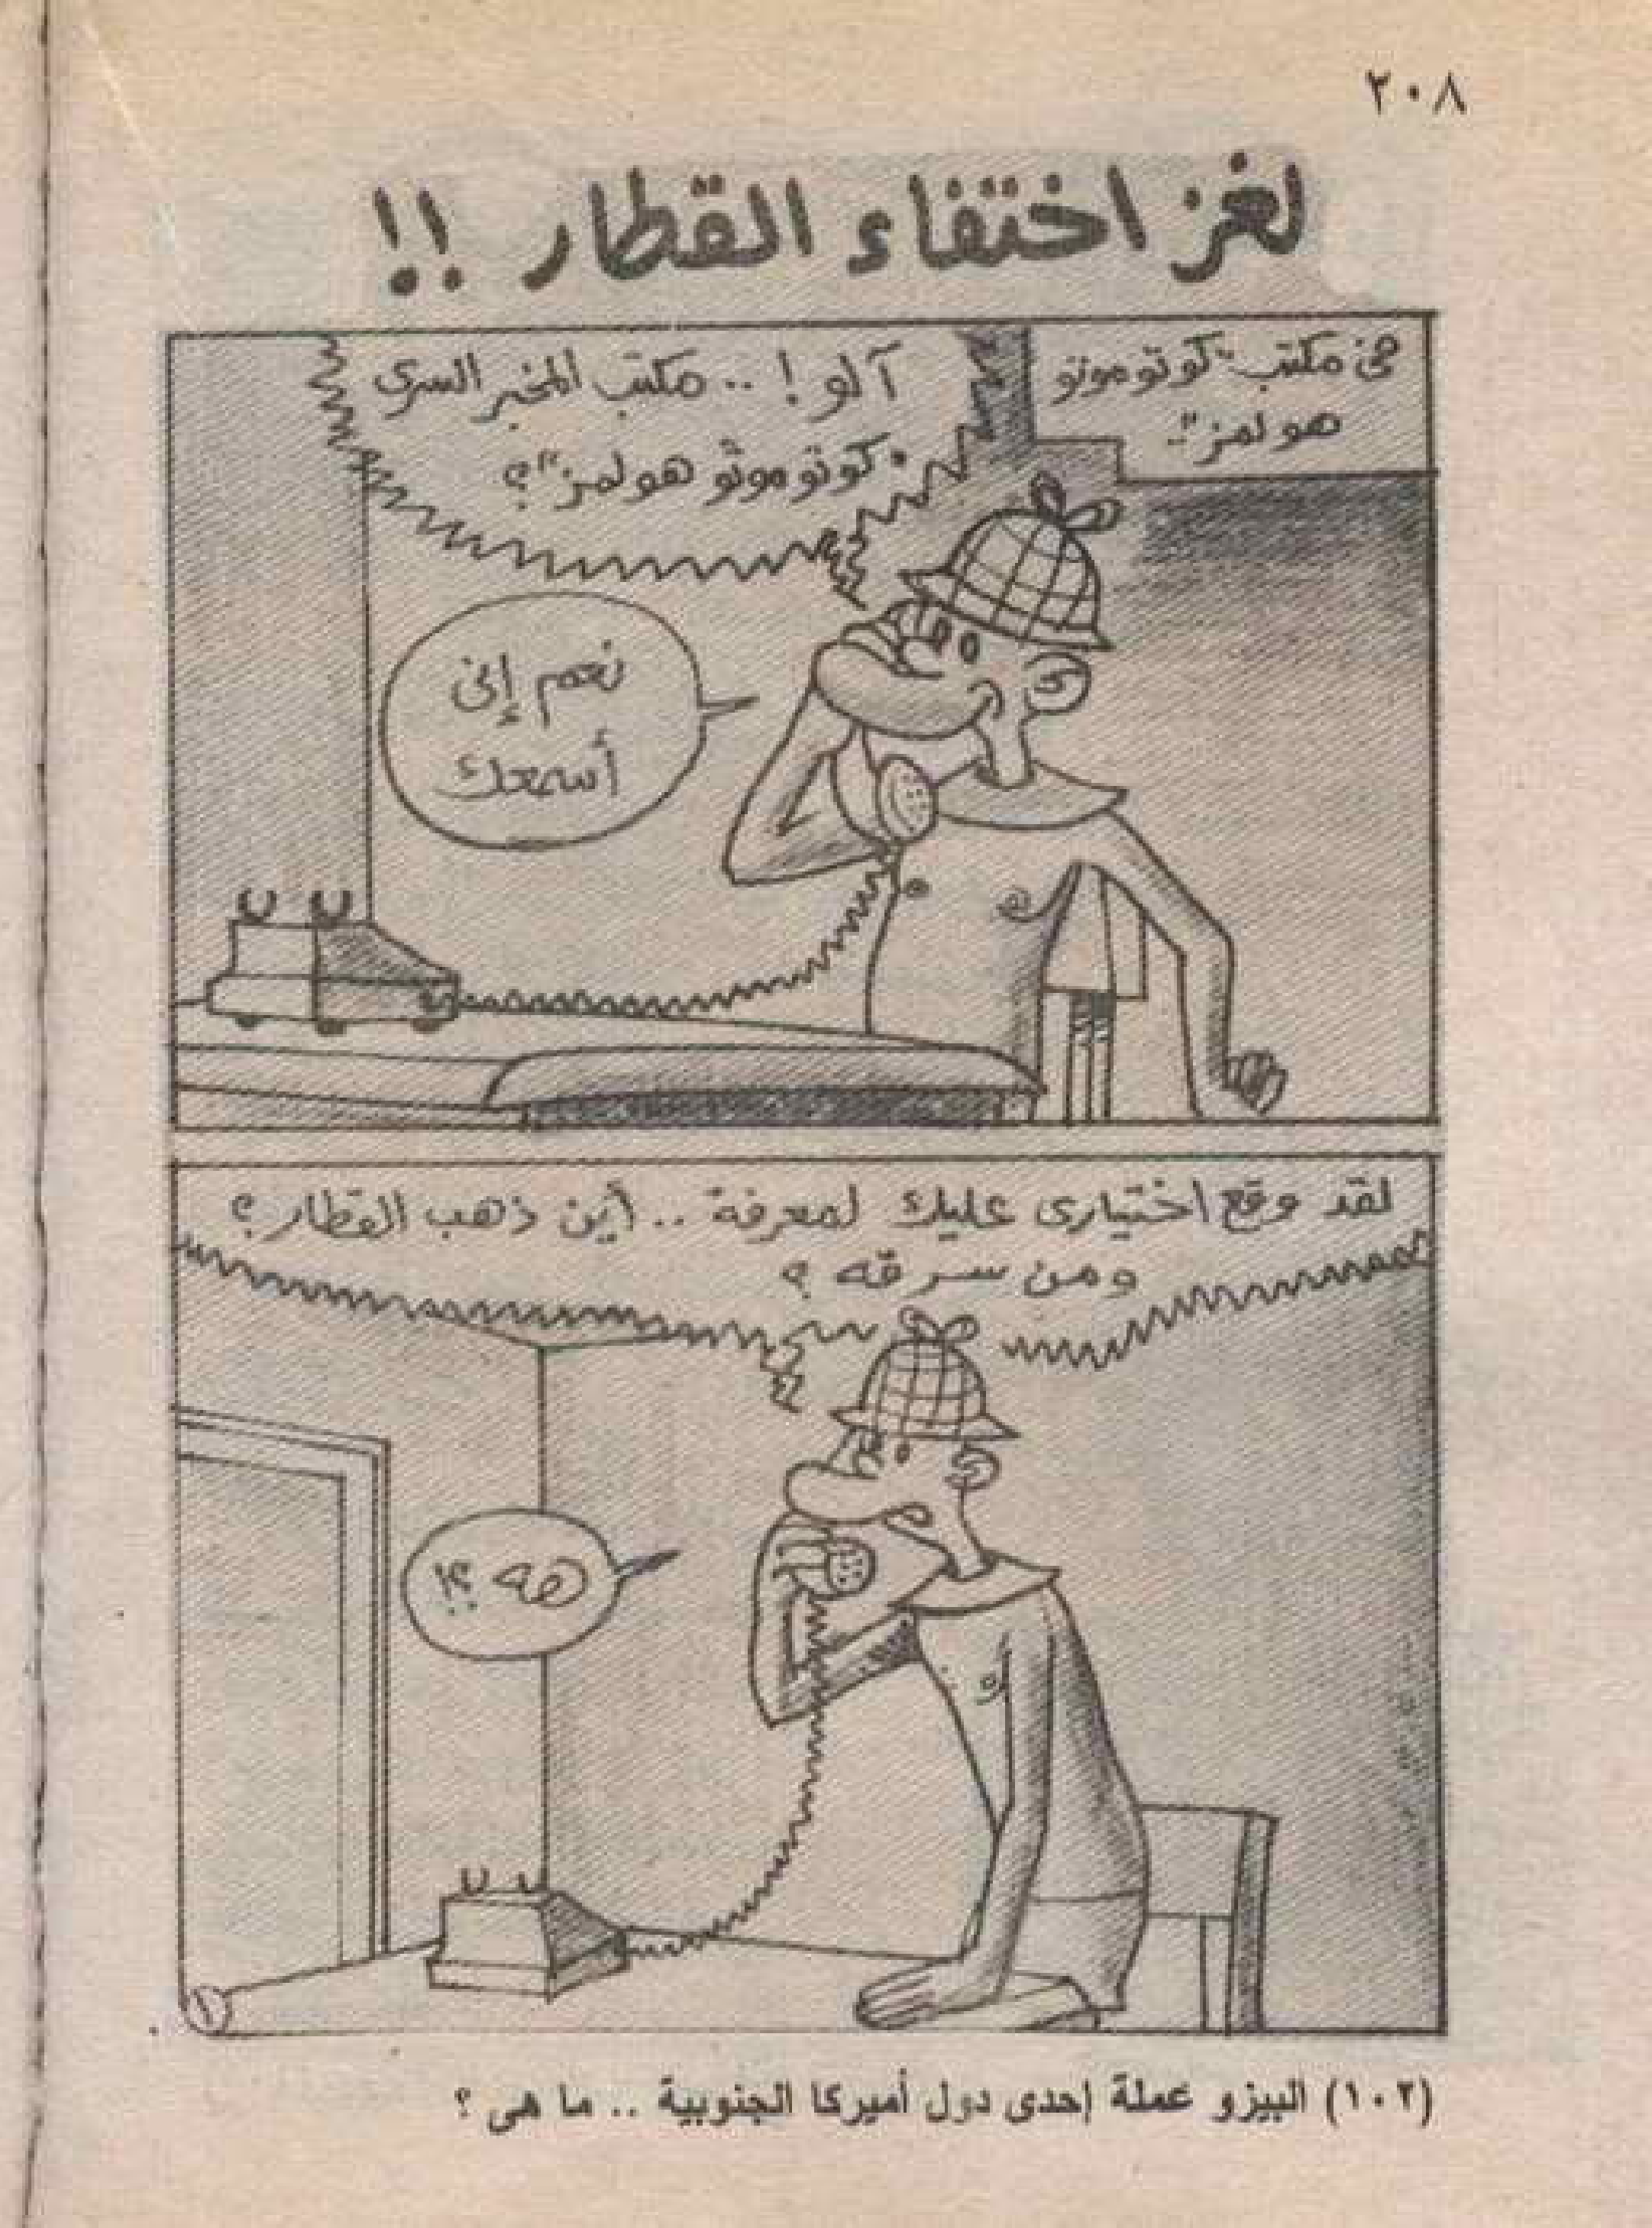 ٢٠٨
لغز اختفاء القطار !!
فى مكتب "كوتوموتو
هولمز"..
آلو ! .. مكتب المخبر السرى
"كوتوموتو هولمز"؟
نعم إنى
أسمعك
لقد وقع اختيارى عليك لمعرفة .. أين ذهب القطار ؟
ومن سرقه ؟
هه ؟!
١
(١٠٢) البيزو عملة إحدى دول أميركا الجنوبية .. ما هى ؟